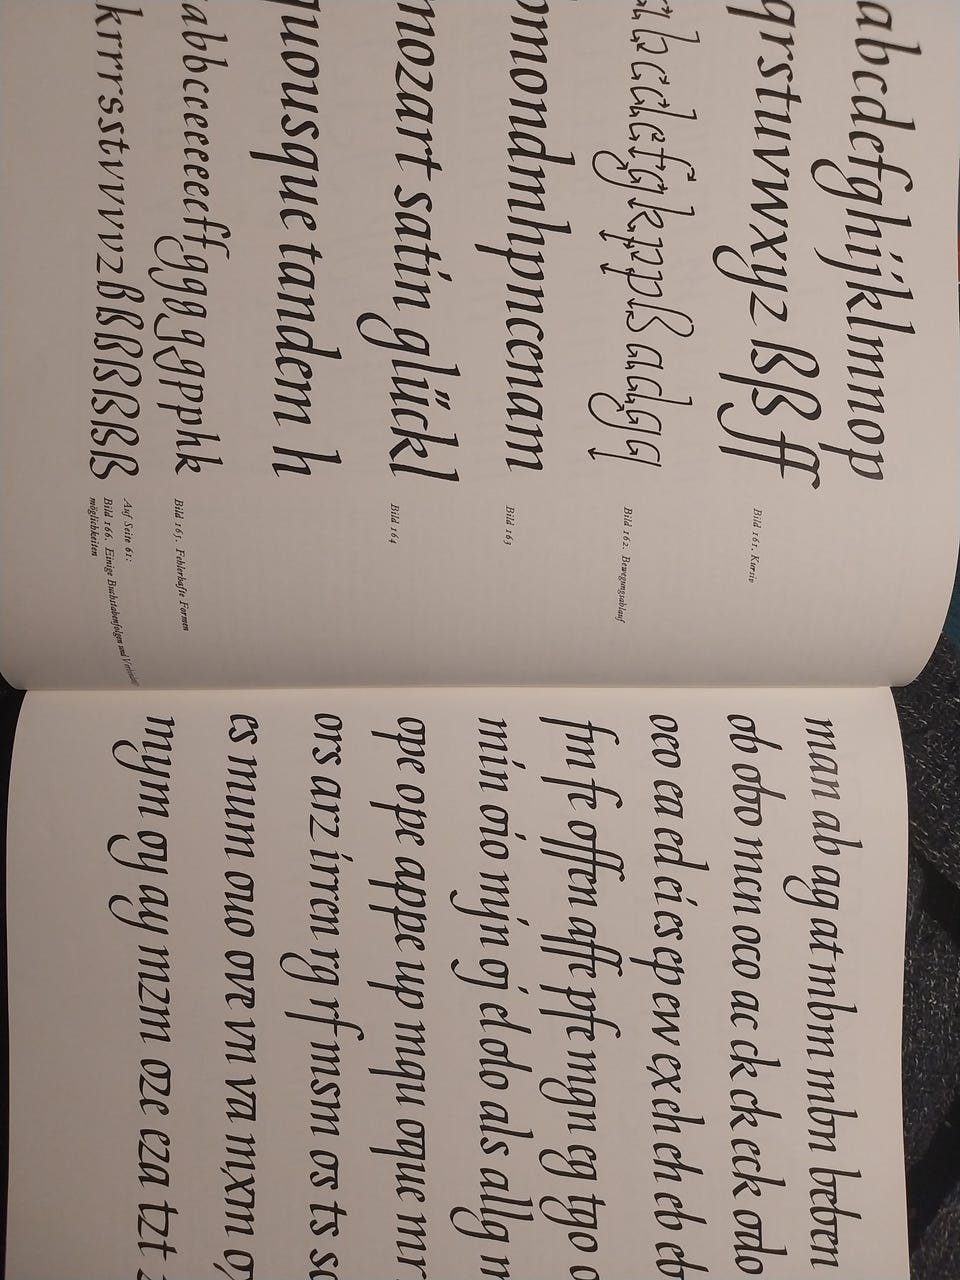 abcdefghijklmnop
qrstuvwxyz ßß ff
Bild 161. Kursiv
abcdefgkppß adgq
Bild 162. Bewegungsablauf
omondmhpncenam
Bild 163
mozart satin glückl
Bild 164
quousque tandem h
abbceeeeeeffggggppphk
Bild 165. Fehlerhafte Formen
krrrsstvvvvzßßßßßßß
Auf Seite 61:
Bild 166. Einige Buchstabenfolgen und
möglichkeiten
man ab ag at mbm mbn beben
ob obo men oco ac ck ck eck odo
oeo ea ed ei es ep ew ex eh ch eb cb
fm fe offen affe pfe mgn eg tgo
min oio mjn oj el olo als allg
ope ope appe up mqu oque mr
ors arz irren rg rf msm os ts
es mum ouo ove vn va mxm
mym oy ay mzm oze eza tzt